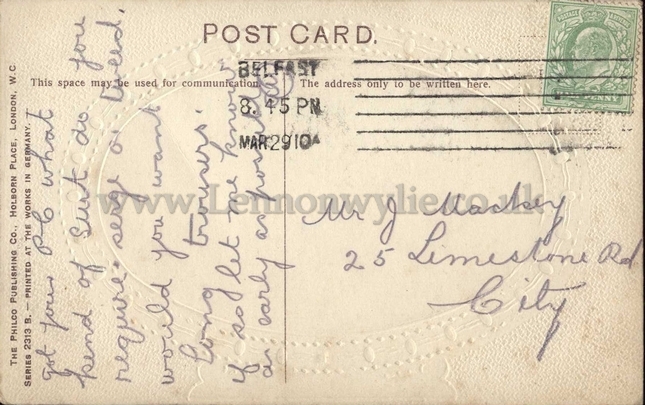 POST CARD.
This space may be used for communication
The address only to be written here.
BELFAST
8.45 PM
MAR 29 10
THE PHILCO PUBLISHING CO., HOLBORN PLACE, LONDON, W.C
SERIES 2313 B. – PRINTED AT THE WORKS IN GERMANY.
got your PC what
kind of Suit do you
require serge or tweed.
would you want
long trousers.
if so let me know
as early as possible
Mr J Mackey
25 Limestone Rd
City
www.Lennonwylie.co.uk
POSTAGE
PENNY